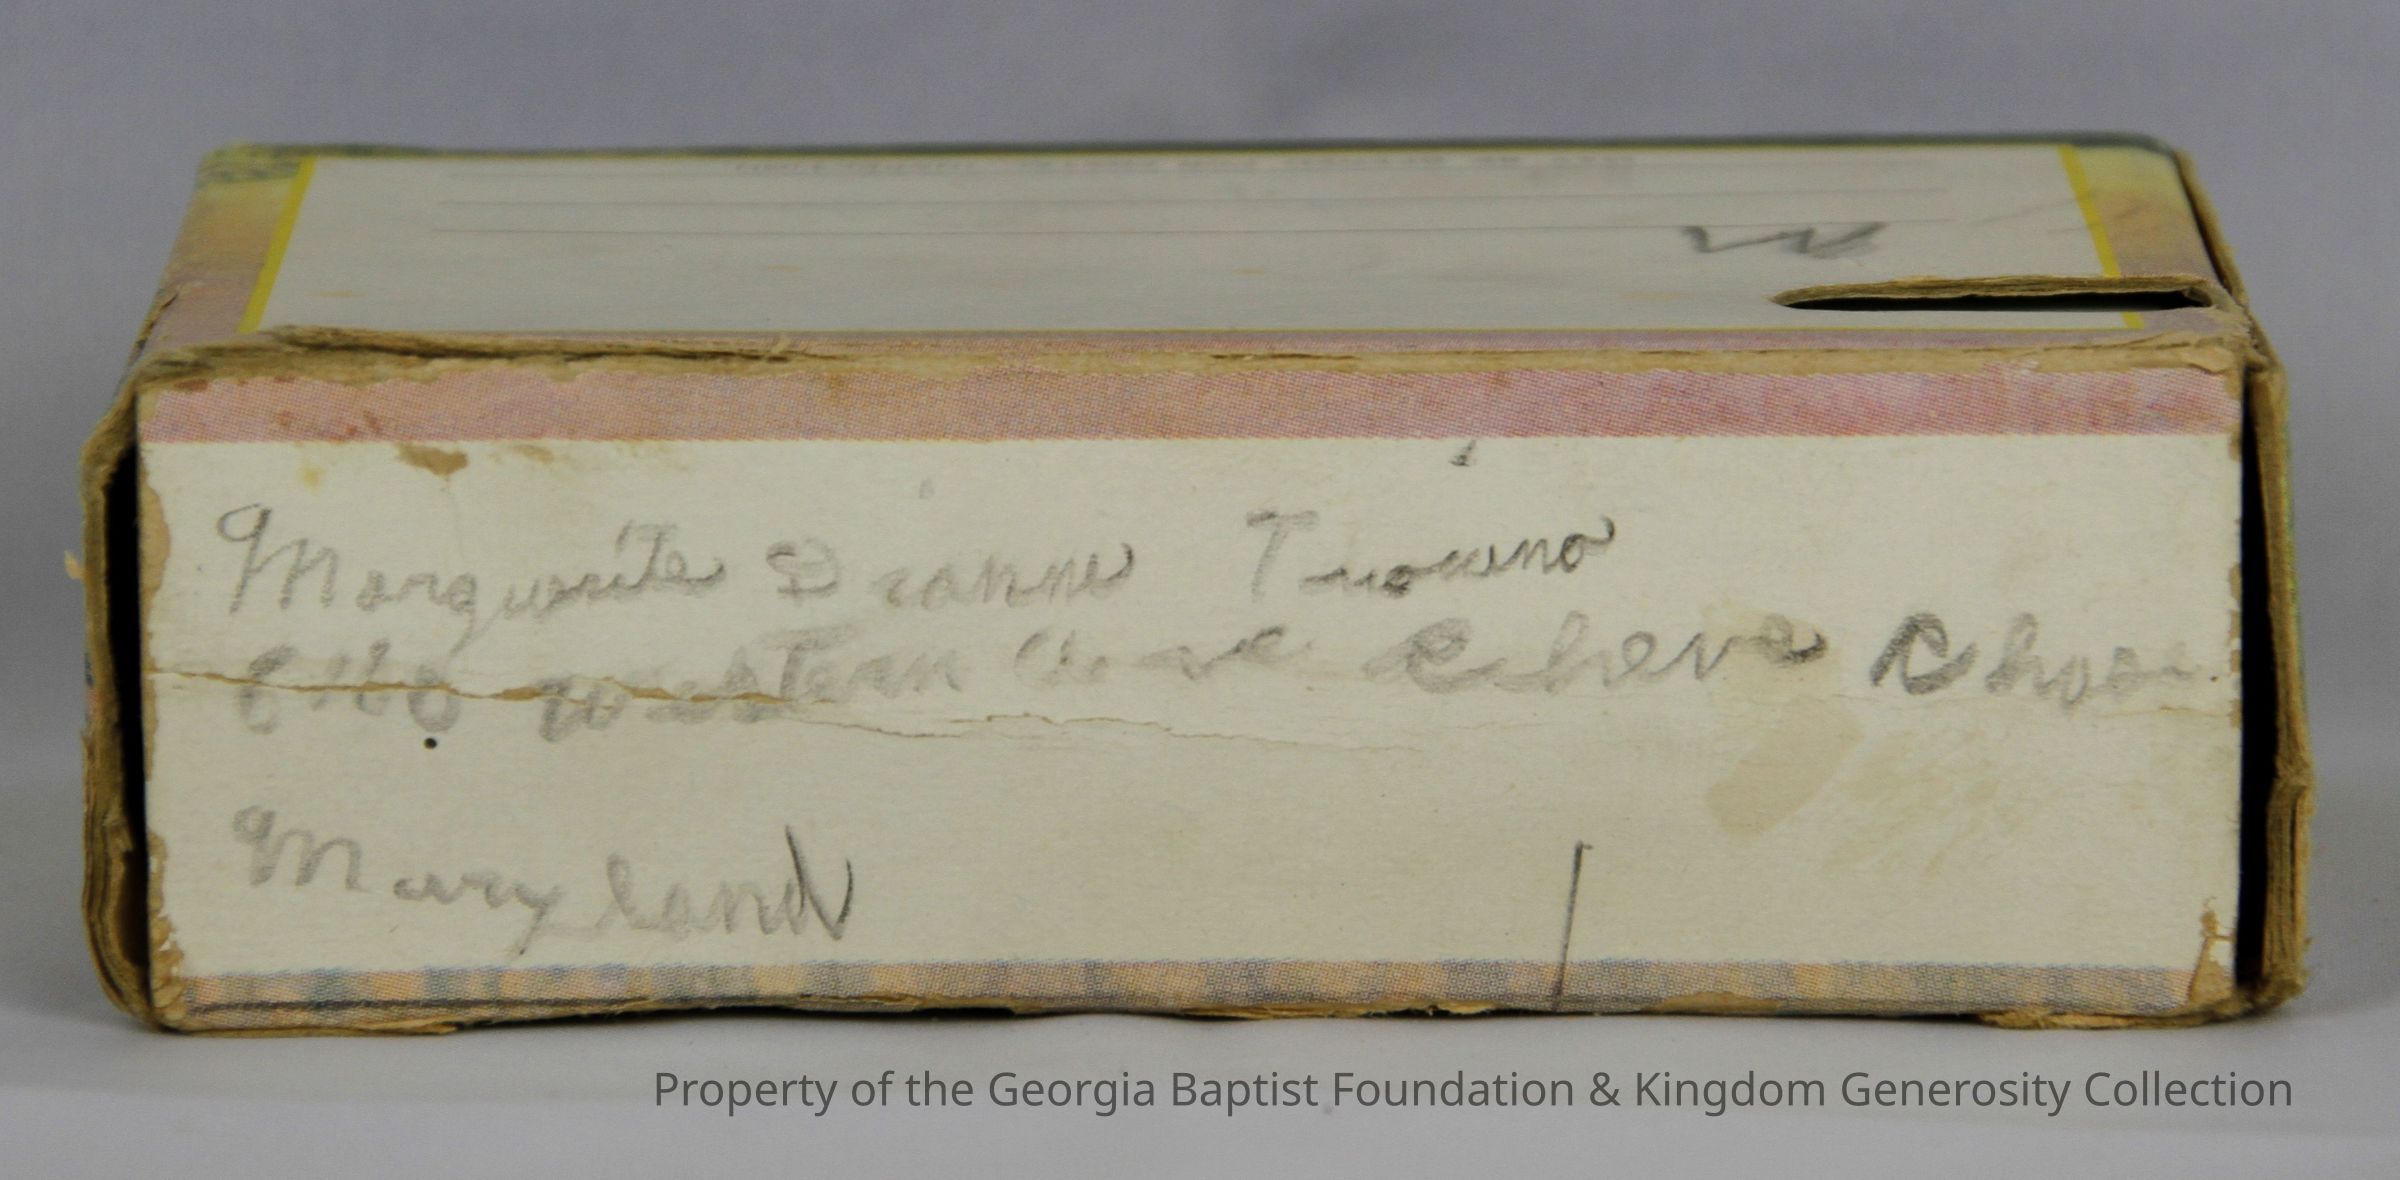 Marguerite Dianne
Western Ave Cheve Chase
Maryland
Property of the Georgia Baptist Foundation & Kingdom Generosity Collection